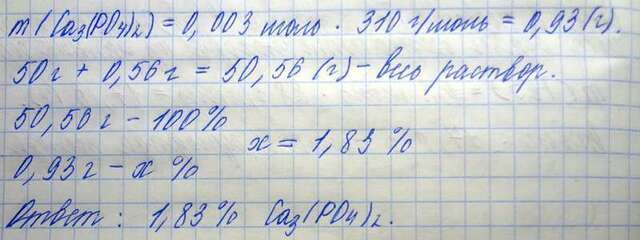 m(Ca3(PO4)2) = 0,003 моль · 310 г/моль = 0,93 (г).
50г + 0,56г = 50,56 (г) - весь раствор.
50,56г - 100%
x = 1,83 %
0,93г - x %
Ответ: 1,83% Ca3(PO4)2.